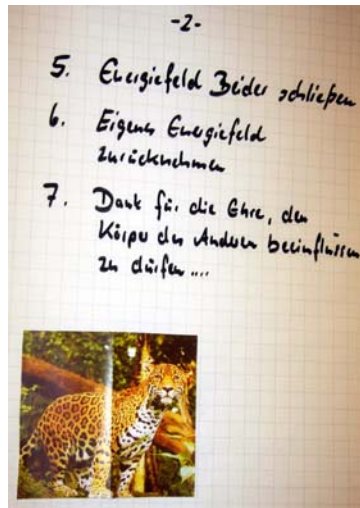 -2-
5. Energiefeld Beider schließen
6. Eigenes Energiefeld
zurücknehmen
7. Dank für die Ehre, den
Körper des Anderen beeinflussen
zu dürfen....